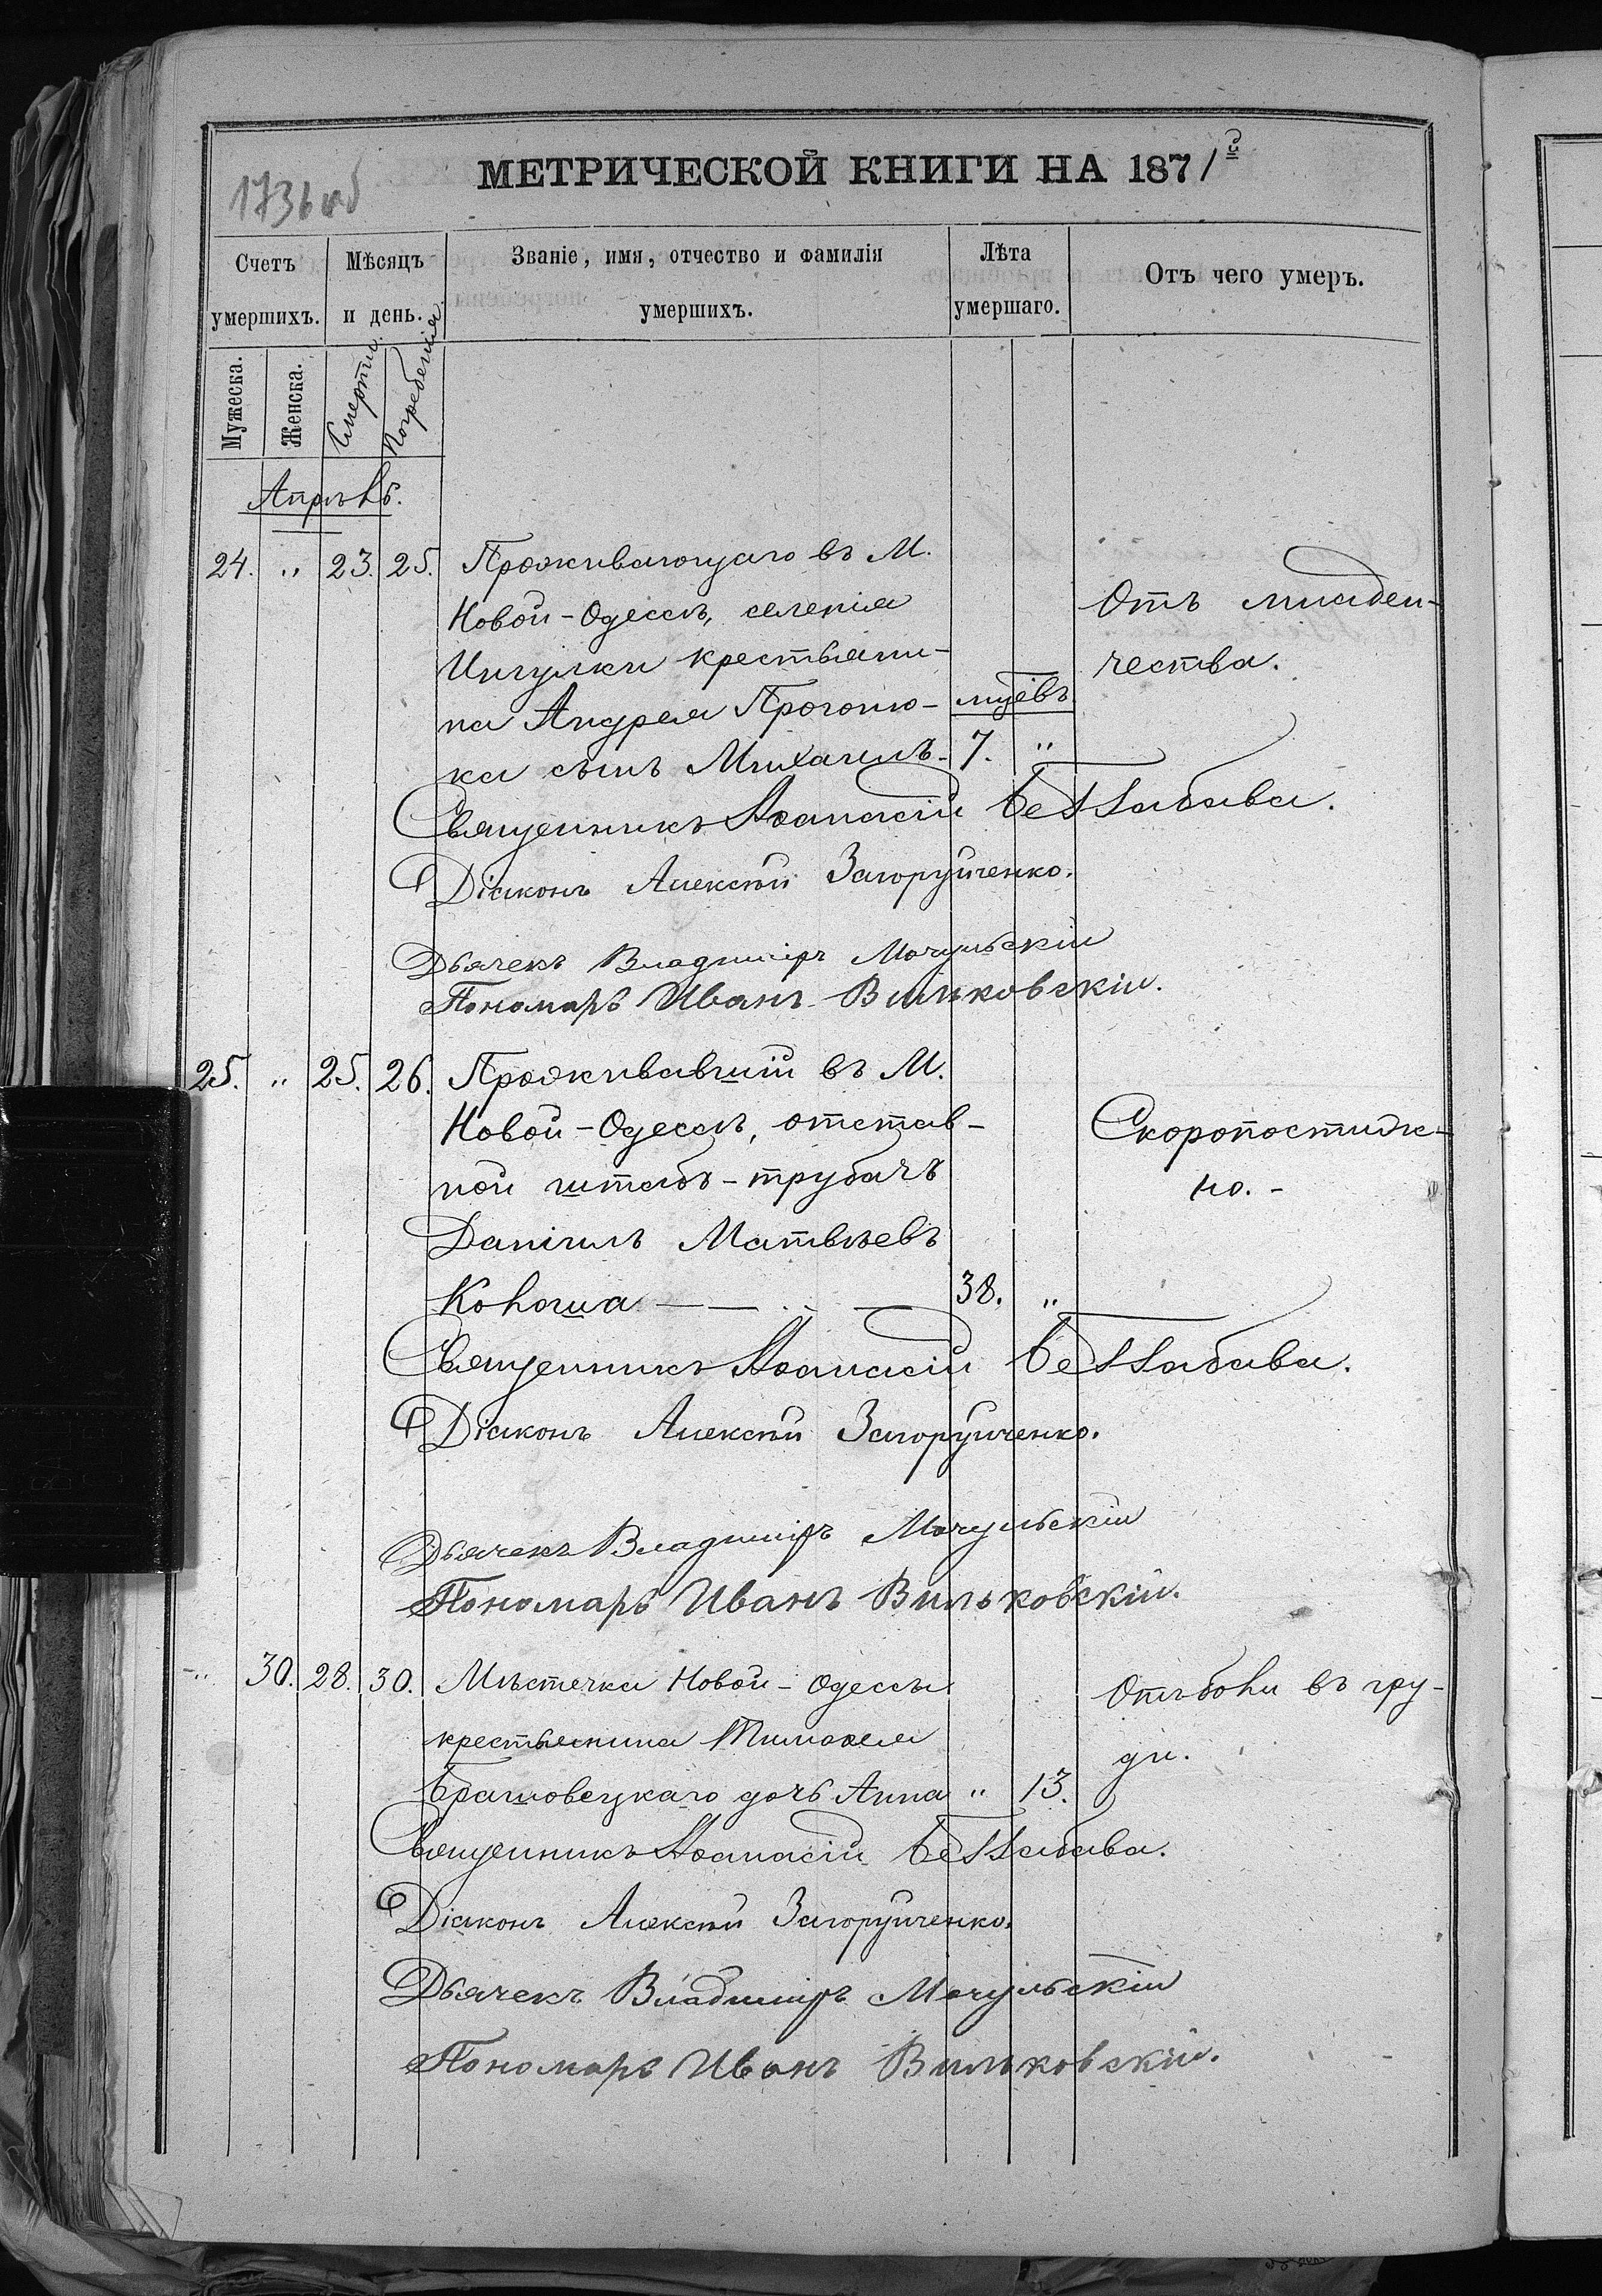 1736 об
МЕТРИЧЕСКОЙ КНИГИ НА 1871й
Счетъ умершихъ.
Мѣсяцъ и день.
Званіе, имя, отчество и фамилія умершихъ.
Лѣта умершаго.
Отъ чего умеръ.
Мужеска.
Женска.
Смерти.
Погребенія.
Апрѣль.
24. „ 23. 25. Проживающаго въ М.
Новой-Одессѣ, селенія Отъ младен-
крестьяни- чества.
на Андрея Прогоню- мцевъ
ка сынъ Михаилъ. 7. „
Священникъ Аѳанасій Беззабава.
Діаконъ Алексѣй Загоруйченко.
Дьячекъ Владиміръ Мочульскій
Пономарь Иванъ Вильковскій.
25. „ 25. 26. Проживавшій въ М.
Новой-Одессѣ, отстав- Скоропостиж-
ной штабъ-трубачъ но.-
Даніилъ Матвѣевъ
Кокоша 38. „
Священникъ Аѳанасій Беззабава.
Діаконъ Алексѣй Загоруйченко.
Дьячекъ Владиміръ Мочульскій
Пономарь Иванъ Вильковскій.
„ 30. 28. 30. Мѣстечка Новой-Одессы Отъ боли въ гру-
крестьянина Тимоѳея ди.
Брашовецкаго дочь Анна „ 13.
Священникъ Аѳанасій Беззабава.
Діаконъ Алексѣй Загоруйченко.
Дьячекъ Владиміръ Мочульскій
Пономарь Иванъ Вильковскій.